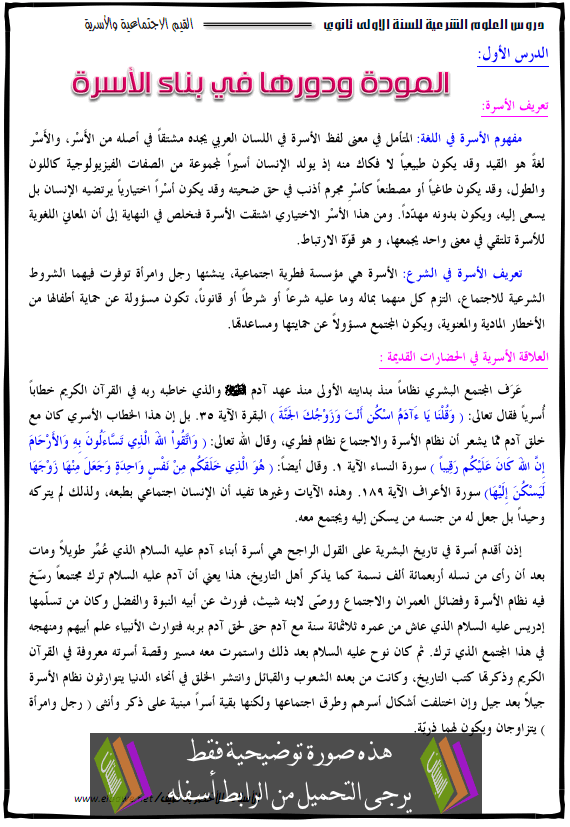 دروس العلوم الشرعية للسنة الاولى ثانوي
القيم الاجتماعية والأسرية
الدرس الأول:
المودة ودورها في بناء الأسرة
تعريف الأسرة:
مفهوم الأسرة في اللغة: المتأمل في معنى لفظ الأسرة في اللسان العربي يجده مشتقاً في أصله من الأَسْر، والأَسْر
لغةً هو القيد وقد يكون طبيعياً لا فكاك منه إذ يولد الإنسان أسيراً لمجموعة من الصفات الفيزيولوجية كاللون
والطول، وقد يكون طاغياً أو مصطنعاً كأسْرِ مجرم أذنب في حق ضحيته وقد يكون أسْراً اختيارياً يرتضيه الإنسان بل
يسعى إليه، ويكون بدونه مهدّداً. ومن هذا الأسْر الاختياري اشتقت الأسرة فنخلص في النهاية إلى أن المعاني اللغوية
للأسرة تلتقي في معنى واحد يجمعها، و هو قوّة الارتباط.
تعريف الأسرة في الشرع: الأسرة هي مؤسسة فطرية اجتماعية، ينشئها رجل وامرأة توفرت فيهما الشروط
الشرعية للاجتماع، التزم كل منهما بماله وما عليه شرعاً أو شرطاً أو قانوناً، تكون مسؤولة عن حماية أطفالها من
الأخطار المادية والمعنوية، ويكون المجتمع مسؤولاً عن حمايتها ومساعدتها.
العلاقة الأسرية في الحضارات القديمة :
عَرَف المجتمع البشري نظاماً منذ بدايته الأولى منذ عهد آدم والذي خاطبه ربه في القرآن الكريم خطاباً
أُسرياً فقال تعالى: ( وَقُلْنَا يَا ءَادَمُ اسْكُنْ أَنْتَ وَزَوْجُكَ الجَنَّةَ ) البقرة الآية ٣٥. بل إن هذا الخطاب الأسري كان مع
خلق آدم مما يشعر أن نظام الأسرة والاجتماع نظام فطري، وقال الله تعالى: ( وَاتَّقُواْ اللهَ الَّذِي تَسَّاءَلُونَ بِهِ وَالأَرْحَامَ
إِنَّ اللهَ كَانَ عَلَيْكُم رَقِيباً ) سورة النساء الآية ١. وقال أيضاً: ( هُوَ الَّذِي خَلَقَكُم مِنْ نَفْسٍ وَاحِدَةٍ وَجَعَلَ مِنْهَا زَوْجَهَا
لَيَسْكُنَ إِلَيْهَا) سورة الأعراف الآية ١٨٩. وهذه الآيات وغيرها تفيد أن الإنسان اجتماعي بطبعه، ولذلك لم يتركه
وحيداً بل جعل له من جنسه من يسكن إليه ويجتمع معه.
إذن أقدم أسرة في تاريخ البشرية على القول الراجح هي أسرة أبناء آدم عليه السلام الذي عُمِّر طويلاً ومات
بعد أن رأى من نسله أربعمائة ألف نسمة كما يذكر أهل التاريخ، هذا يعني أن آدم عليه السلام ترك مجتمعاً رسّخ
فيه نظام الأسرة وفضائل العمران والاجتماع ووصّى لابنه شيث، فورث عن أبيه النبوة والفضل وكان من تسلّمها
إدريس عليه السلام الذي عاش من عمره ثلاثمائة سنة مع آدم حتى لحق آدم بربه فتوارث الأنبياء علم أبيهم ومنهجه
في هذا المجتمع الذي ترك. ثم كان نوح عليه السلام بعد ذلك واستمرت معه مسير وقصة أسرته معروفة في القرآن
الكريم وذكرتها كتب التاريخ، وكانت من بعده الشعوب والقبائل وانتشر الخلق في أنحاء الدنيا يتوارثون نظام الأسرة
جيلاً بعد جيل وإن اختلفت أشكال أسرهم وطرق اجتماعها ولكنها بقية أسراً مبنية على ذكر وأنثى ( رجل وامرأة
) يتزاوجان ويكون لهما ذريّة.
هذه صورة توضيحية فقط
يرجى التحميل من الرابط أسفله